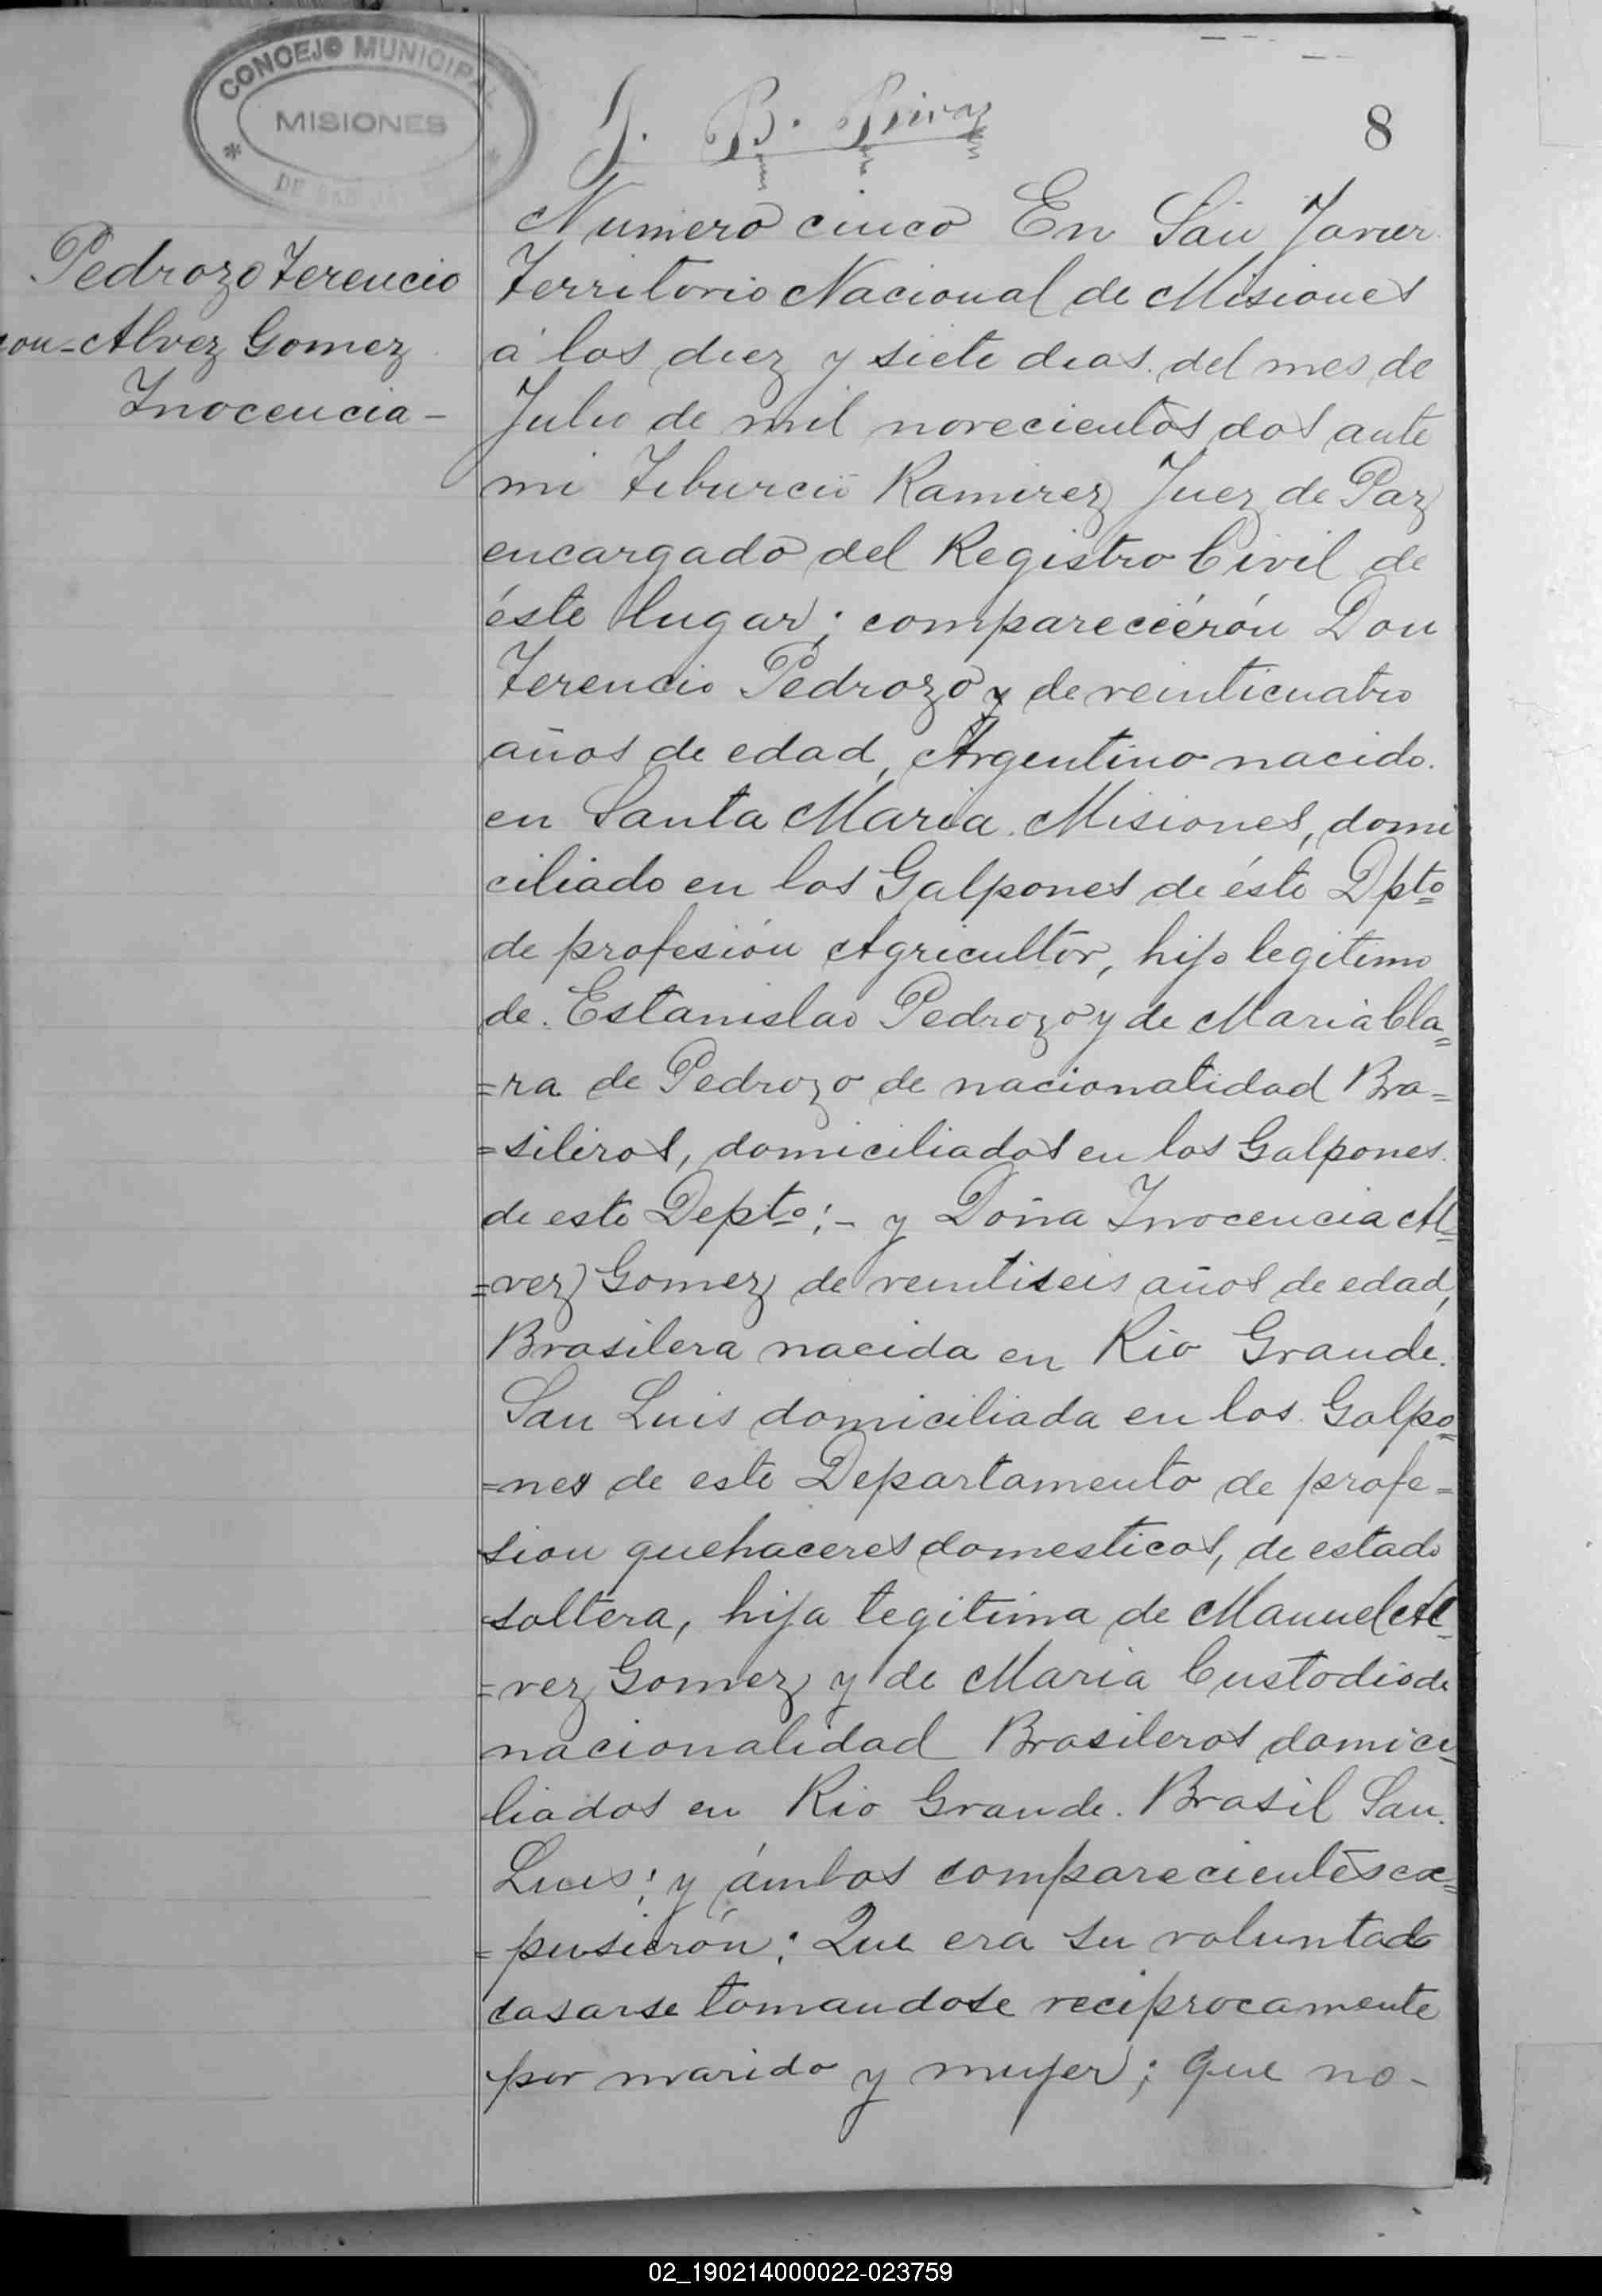 CONCEJO MUNICIPAL
MISIONES
J. B. Rivas
8
Pedrozo Terencio
con-Alvez Gomez
Inocencia-
Numero cinco En San Javier
Territorio Nacional de Misiones
á los diez y siete dias del mes de
Julio de mil novecientos dos ante
mi Tiburcio Ramirez Juez de Paz
encargado del Registro Civil de
éste lugar; compareciéron Don
Terencio Pedrozo y de veinticuatro
años de edad, Argentino nacido.
en Santa Maria. Misiones, domi
ciliado en los Galpones de éste Dpto
de profesión Agricultor, hijo legitimo
de. Estanislao Pedrozo y de Maria Cla=
=ra de Pedrozo de nacionalidad Bra=
=sileros, domiciliados en los Galpones.
de este Depto:- y Doña Inocencia Al=
=vez Gomez de veintiseis años de edad,
Brasilera nacida en Rio Grande.
San Luis domiciliada en los Galpo=
=nes de este Departamento de profe=
sion quehaceres domesticos, de estado
soltera, hija legitima de Manuel Al=
=vez Gomez y de Maria Custodio de
nacionalidad Brasileros domici=
liados en Rio Grande. Brasil San.
Luis; y ámbos comparecientes ex=
=pusierón: Que era su voluntad
casarse tomandose reciprocamente
por marido y mujer; que no-
02_190214000022-023759